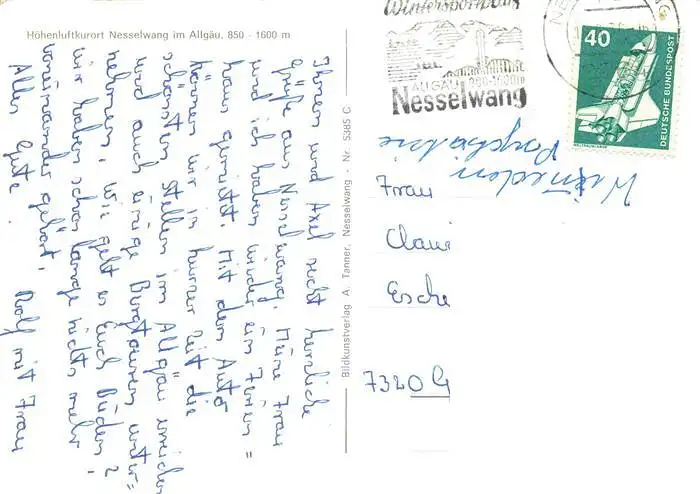 Höhenluftkurort Nesselwang im Allgäu, 850 - 1600 m
Ihnen und Axel recht herzliche
Grüße aus Nesselwang. Meine Frau
und ich haben wieder ein Ferien=
haus gemietet. Mit dem Auto
können wir in kurzer Zeit die
schönsten Stellen im Allgäu erreichen
und auch einige Bergtouren unter=
nehmen. Wie geht es Euch Beiden?
Wir haben schon lange nichts mehr
voneinander gehört.
Alles Gute. Rolf mit Frau
Bildkunstverlag A. Tanner, Nesselwang - Nr. S385 C
Wintersportplatz
ALLGÄU 900-1600m
Nesselwang
40
DEUTSCHE BUNDESPOST
WELTRAUMLABOR
Frau
Claui
Esche
7320 G